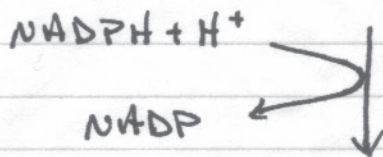 NADPH + H⁺
NADP